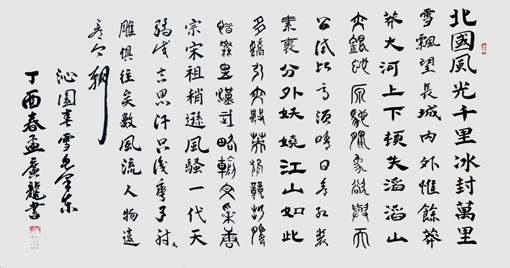 北國風光千里冰封萬里
雪飄望長城内外惟餘莽
莽大河上下頓失滔滔山
舞銀蛇原馳蠟象欲與天
公試比高須晴日看紅裝
素裹分外妖嬈江山如此
多嬌引無數英雄競折腰
惜秦皇漢武略輸文采唐
宗宋祖稍遜風騷一代天
驕成吉思汗只識彎弓射大
雕俱往矣數風流人物還
看今朝
沁園春雪毛澤東
丁酉春孟廣龍書